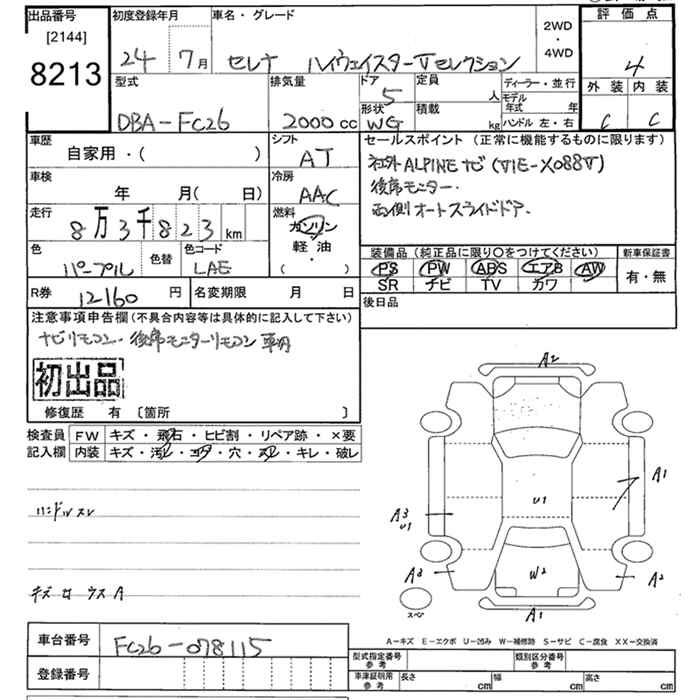 出品番号
[2144]
8213
初度登録年月
24 7月
車名・グレード
セレナ ハイウェイスターVセレクション
2WD
・
4WD
評価点
4
外装 内装
C C
型式
DBA-FC26
排気量
2000cc
ドア
5
形状
WG
定員
人
積載
kg
ディーラー・並行
モデル年式 年
ハンドル 左・右
車歴
自家用・( )
シフト
AT
車検
年 月( 日)
冷房
AAC
走行
8万3千823km
燃料
ガソリン
軽・油
( )
色
パープル
色替
色コード
LAE
R券 12160円
名変期限 月 日
セールスポイント(正常に機能するものに限ります)
社外ALPINEナビ(VIE-X088V)
後席モニター.
両側オートスライドドア.
装備品(純正品に限り○をつけてください)
PS PW ABS エアB AW
SR ナビ TV カワ
新車保証書
有・無
後日品
注意事項申告欄(不具合内容等は具体的に記入して下さい)
ナビリモコン・後席モニターリモコン 車内
初出品
修復歴 有 〔箇所 〕
検査員記入欄
FW キズ・飛石・ヒビ割・リペア跡・×要
内装 キズ・汚レ・コゲ・穴・スレ・キレ・破レ
ハンドルスレ
キズ ロ ウス A
A2
A1
U1
A3
U1
A3
W2
A2
A1
スペア
A-キズ E-エクボ U-凹み W-補修跡 S-サビ C-腐食 XX-交換済
車台番号
FC26-078115
登録番号
型式指定番号
参考
類別区分番号
参考
車庫証明用
参考
長さ cm 幅 cm 高さ cm